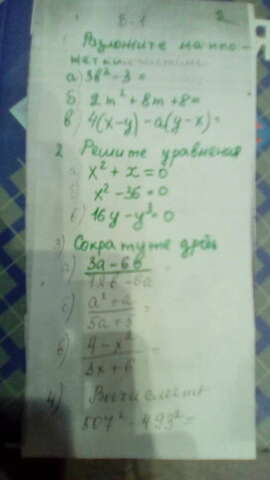 В-1
2
1 Разложите на мно-
жетки
а) 3b² - 3 =
б) 2m² + 8m + 8 =
в) 4(x-y) - a(y-x) =
2 Решите уравнения
а) x² + x = 0
б) x² - 36 = 0
в) 16y - y³ = 0
3) Сократите дробь
а) 3a - 6b
12b - 6a
б) a² + a
5a + 5
в) 4 - x²
3x + 6
4) Вычислить
507² - 493² =